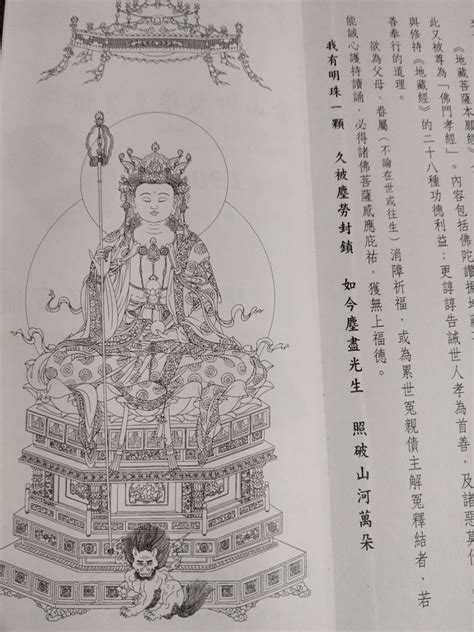 《地藏菩薩本願經》
此又被尊為「佛門孝經」。內容包括佛陀讚揚地藏
與修持《地藏經》的二十八種功德利益；更諄諄告誡世人孝為首善，及諸惡莫作
善奉行的道理。
欲為父母、眷屬(不論在世或往生)消障祈福，或為累世冤親債主解冤釋結者，若
能誠心護持讀誦，必得諸佛菩薩感應庇祐，獲無上福德。
我有明珠一顆 久被塵勞封鎖 如今塵盡光生 照破山河萬朵